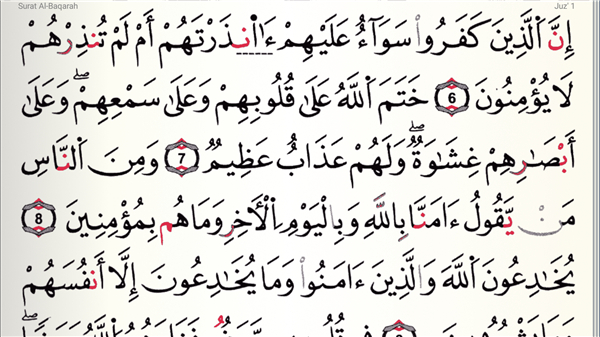 Surat Al-Baqarah Juz' 1
إِنَّ ٱلَّذِينَ كَفَرُوا۟ سَوَآءٌ عَلَيْهِمْ ءَأَنذَرْتَهُمْ أَمْ لَمْ تُنذِرْهُمْ
لَا يُؤْمِنُونَ 6 خَتَمَ ٱللَّهُ عَلَىٰ قُلُوبِهِمْ وَعَلَىٰ سَمْعِهِمْ ۖ وَعَلَىٰ
أَبْصَـٰرِهِمْ غِشَـٰوَةٌ ۖ وَلَهُمْ عَذَابٌ عَظِيمٌ 7 وَمِنَ ٱلنَّاسِ
مَن يَقُولُ ءَامَنَّا بِٱللَّهِ وَبِٱلْيَوْمِ ٱلْـَٔاخِرِ وَمَا هُم بِمُؤْمِنِينَ 8
يُخَـٰدِعُونَ ٱللَّهَ وَٱلَّذِينَ ءَامَنُوا۟ وَمَا يَخْدَعُونَ إِلَّآ أَنفُسَهُمْ